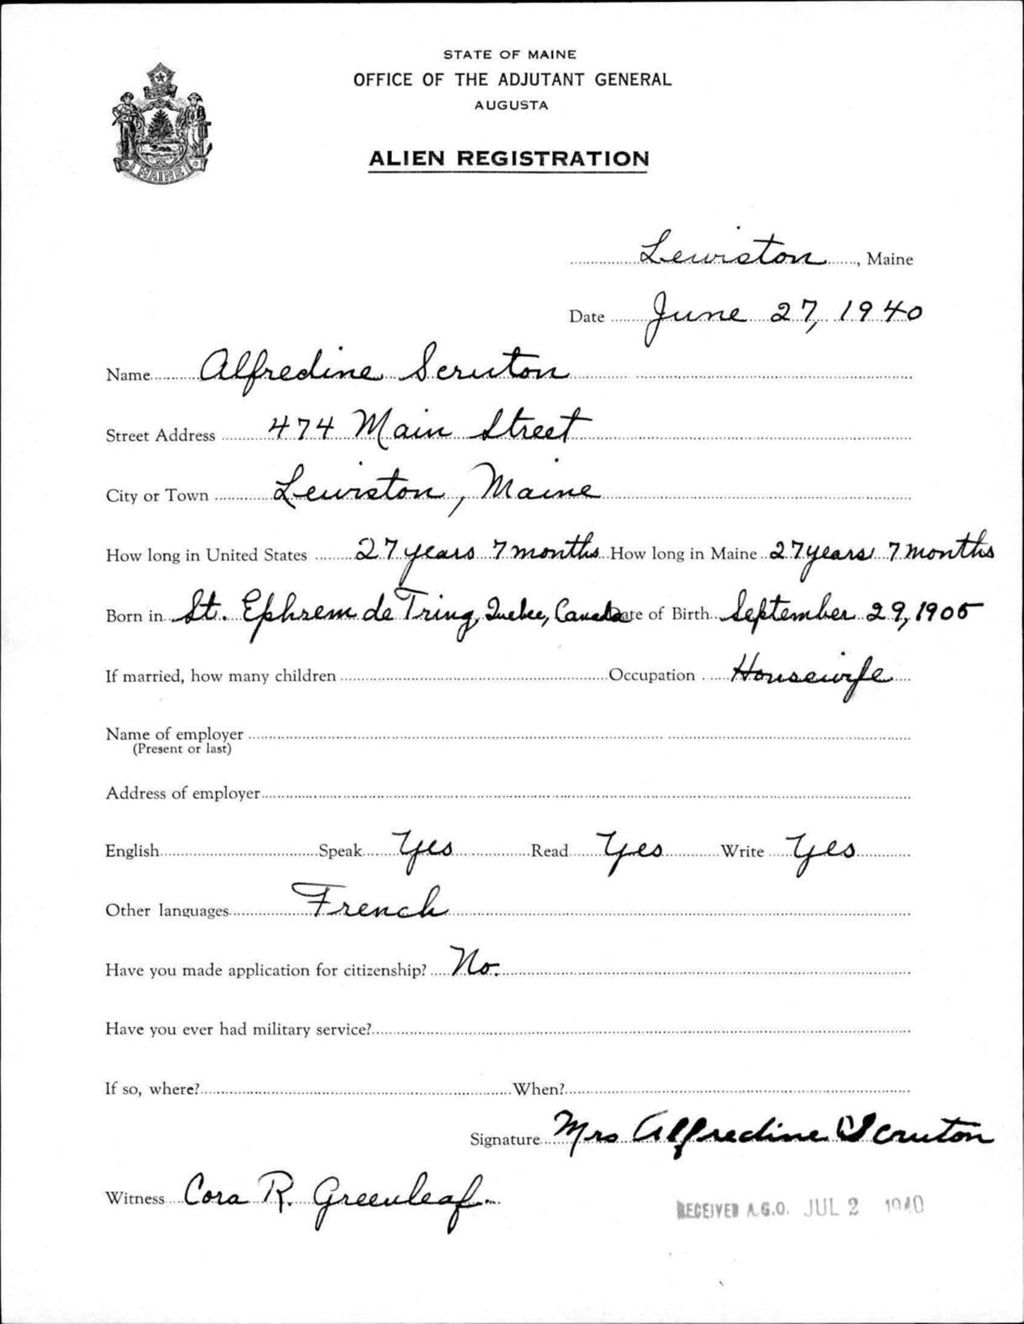 STATE OF MAINE
OFFICE OF THE ADJUTANT GENERAL
AUGUSTA
ALIEN REGISTRATION
MAINE
Lewiston, Maine
Date June 27, 1940
Name Alfredine Scruton
Street Address 474 Main Street
City or Town Lewiston, Maine
How long in United States 27 years 7 months How long in Maine 27 years 7 months
Born in St. Ephrem de Tring, Quebec, Canada Date of Birth September 29, 1905
If married, how many children Occupation Housewife
Name of employer
(Present or last)
Address of employer
English Speak Yes Read Yes Write Yes
Other languages French
Have you made application for citizenship? No.
Have you ever had military service?
If so, where? When?
Signature Mrs Alfredine Scruton
Witness Cora R. Greenleaf
RECEIVED A.G.O. JUL 2 1940